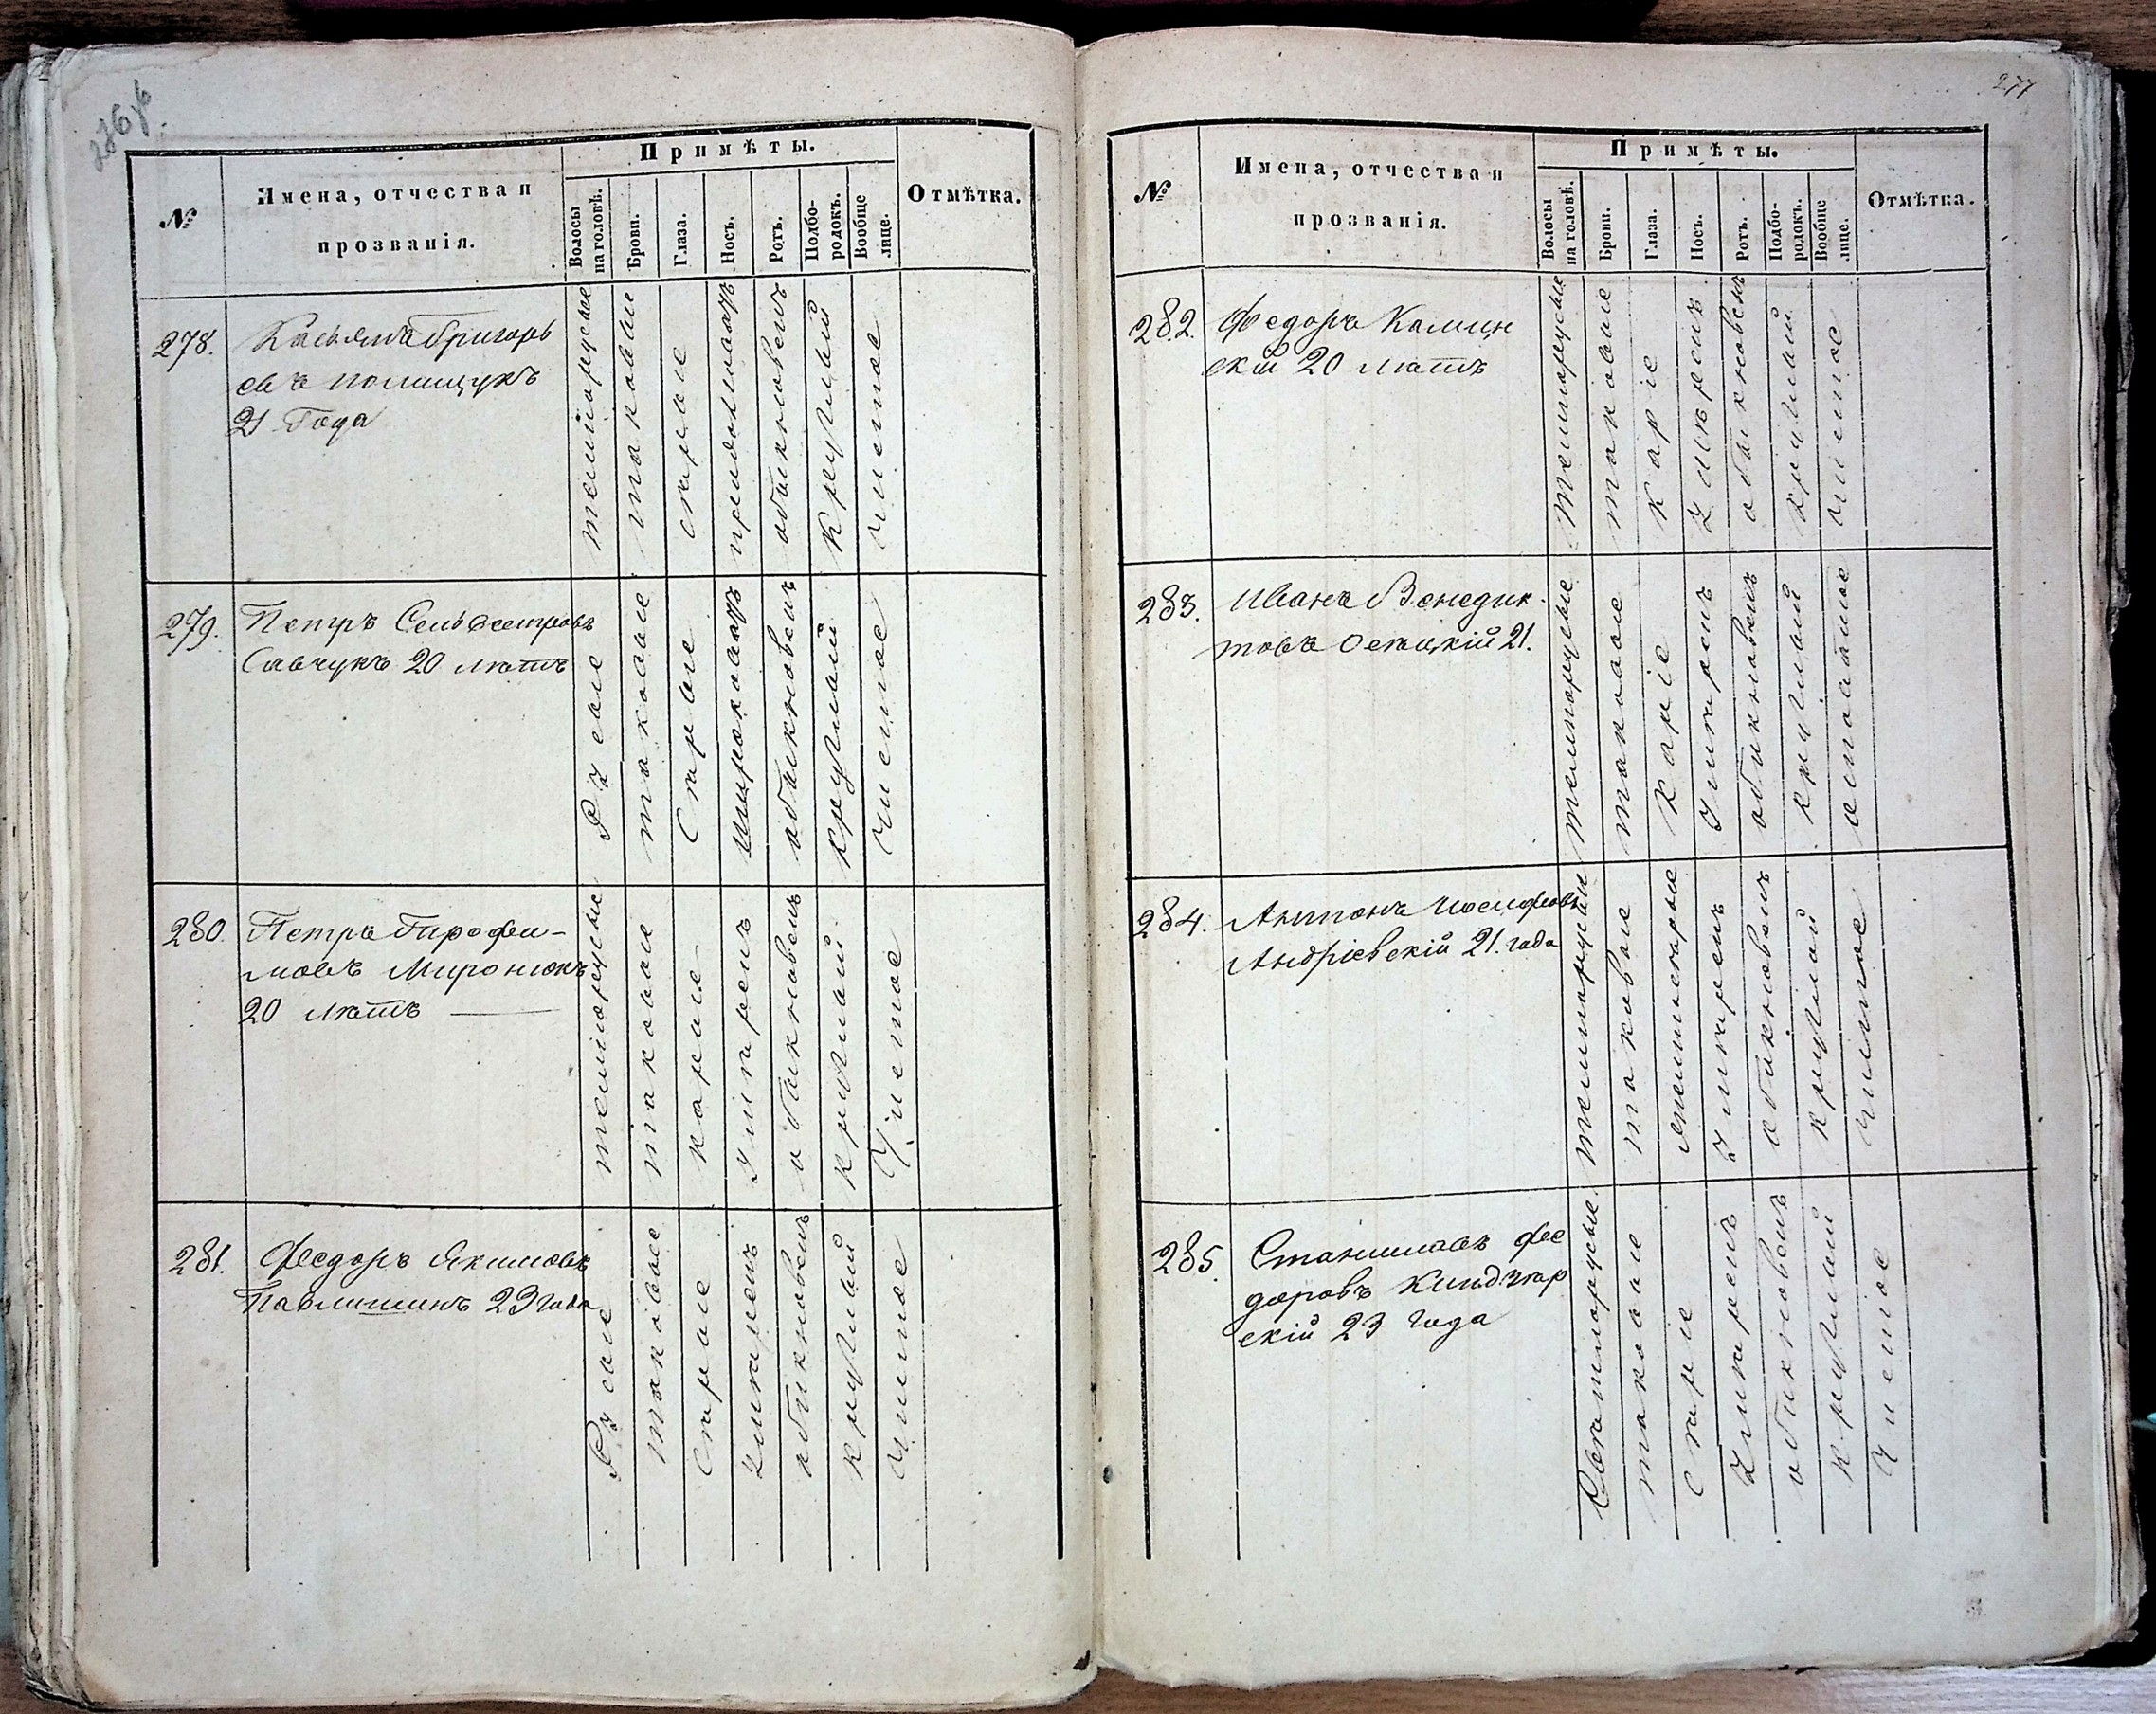 276об.
№
Имена, отчества и
прозванія.
Примѣты.
Волосы
на головѣ.
Брови.
Глаза.
Носъ.
Ротъ.
Подбо-
родокъ.
Вообще
лице.
Отмѣтка.
278.
Касьянъ Григорь
евъ Полищукъ
21 Года
темнорусые
таковые
сѣрые
продолговатъ
обыкновенъ
круглый
чистое
279.
Петръ Сельвестровъ
Савчукъ 20 лѣтъ
Русые
таковые
Сѣрые
широковатъ
обыкновенъ
круглый
чистое
280.
Петръ Трофи-
мовъ Миронюкъ
20 лѣтъ
темнорусые
таковые
карые
умѣренъ
обыкновенъ
круглый
Чистое
281.
Федоръ Якимовъ
Павлишинъ 23 года
Русые
таковые
Сѣрые
умѣренъ
обыкновенъ
круглый
чистое
277
№
Имена, отчества и
прозванія.
Примѣты.
Волосы
на головѣ.
Брови.
Глаза.
Носъ.
Ротъ.
Подбо-
родокъ.
Вообще
лице.
Отмѣтка.
282.
Федоръ Камин
скій 20 лѣтъ
темнорусые
таковые
каріе
умѣренъ
обыкновенъ
круглый
чистое
283.
Иванъ Венедик
товъ 21.
темнорусые
таковые
каріе
умѣренъ
обыкновенъ
круглый
284.
Антонъ Іосифовъ
Андріевскій 21. года
темнорусые
таковые
умѣренъ
обыкновенъ
круглый
чистое
285.
Станиславъ Фе
доровъ Киндзѣр
скій 23 года
Свѣтлорусые
таковые
сѣрые
умѣренъ
обыкновенъ
круглый
Чистое